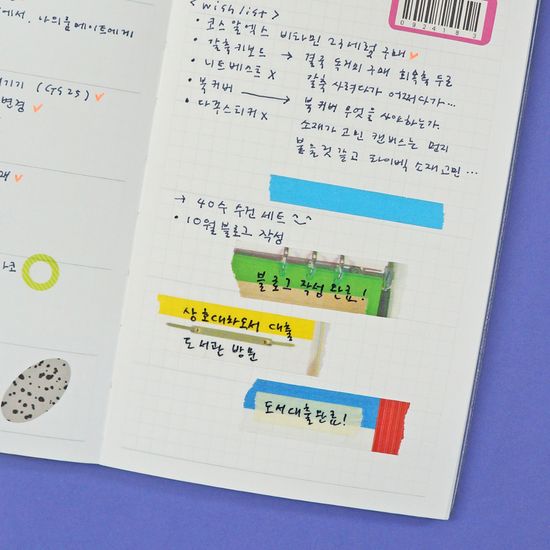 에서, 나의룸메이트에게
기기 (GS25) ✓
변경 ✓
<wish list>
• 코스알엑스 비타민 23세럼 구매 ✓
• 갈축키보드 → 결국 동거의 구매
갈축 사려다가 어쩌다가...
• 니트베스트 X
• 북커버 → 북커버 무엇을 사야하는가.
소재가 고민 캔버스는 먼지
붙을것 같고 타이벡 소재고민...
• 다꾸스티커 X
092418
→ 40수 수건 세트
• 10월 블로그 작성
블로그 작성 완료!
상호대차도서 대출
도서관 방문
도서대출완료!